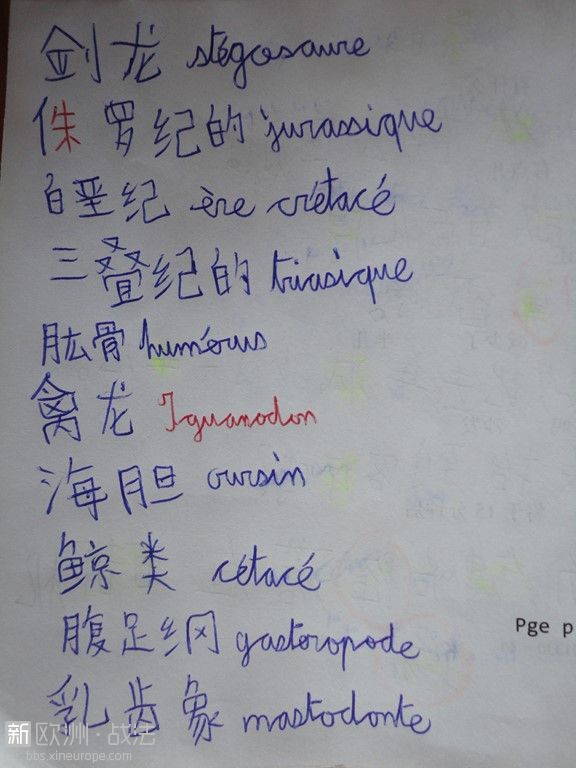 剑龙 stégosaure
侏罗纪的 jurassique
白垩纪 ère crétacé
三叠纪的 triasique
肱骨 humérus
禽龙 Iguanodon
海胆 oursin
鲸类 cétacé
腹足纲 gasteropode
Pge p
乳齿象 mastodonte
新欧洲·战法
bbs.xineurope.com